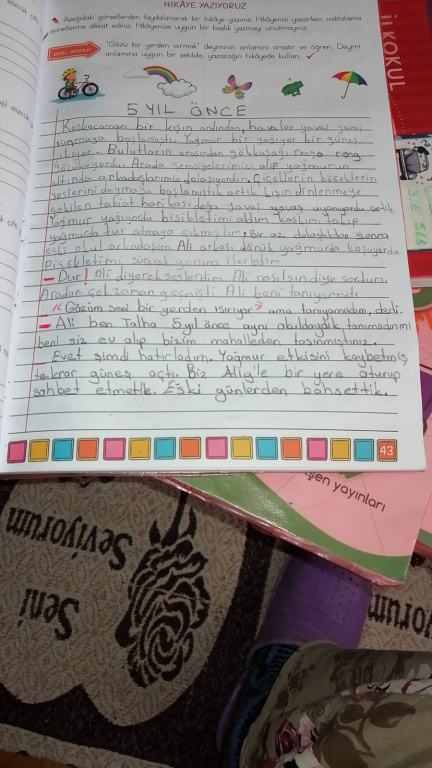 HİKÂYE YAZIYORUZ
Aşağıdaki görsellerden faydalanarak bir hikâye yazınız. Hikâyenizi yazarken noktalama
işaretlerine dikkat ediniz. Hikâyenize uygun bir başlık yazmayı unutmayınız.
ÖZEL GÖREV
"Gözü bir yerden ısırmak" deyiminin anlamını araştır ve öğren. Deyimi
anlamına uygun bir şekilde, yazacağın hikâyede kullan.
5 YIL ÖNCE
Koskocaman bir kışın ardından, havalar yavaş yavaş
ısınmaya başlamıştı. Yağmur bir yağıyor bir güneş
Bulutların arasından gökkuşağı rengo reng
gözüküyordu. Arada şemsiyelerimizi alıp yağmurun
altında arkadaşlarımla dolaşıyorduk. Çiçeklerin böceklerin
seslerini duymaya başlamıştık artık. Kışın dinlenmeye
çekilen tabiat harikası doğa yavaş yavaş uyanıyordu artık
Yağmur yağıyordu bisikletimi aldım kaskını takıp
yağmurda tur atmaya çıkmıştım. Bir az dolaştıktan sonra
eski okul arkadaşım Ali arkası dönük yağmurda koşuyordu
Bisikletimi sürerek yanına ilerledim
- Dur! Ali diyerek seslendim Ali nasılsın diye sordum.
Aradan çok zaman geçmişti Ali beni tanıyamadı
"Gözüm seni bir yerden ısırıyor" ama tanıyamadım, dedi.
- Ali ben Talha 5 yıl önce aynı okuldaydık tanımadın mı
beni siz ev alıp bizim mahalleden taşınmıştınız.
Evet şimdi hatırladım. Yağmur etkisini kaybetmiş
tekrar güneş açtı. Biz Alig'le bir yere oturup
sohbet etmetik. Eski günlerden bahsettik.
43
İLKOKUL
şen yayınları
Seni
Seviyorum
yorum